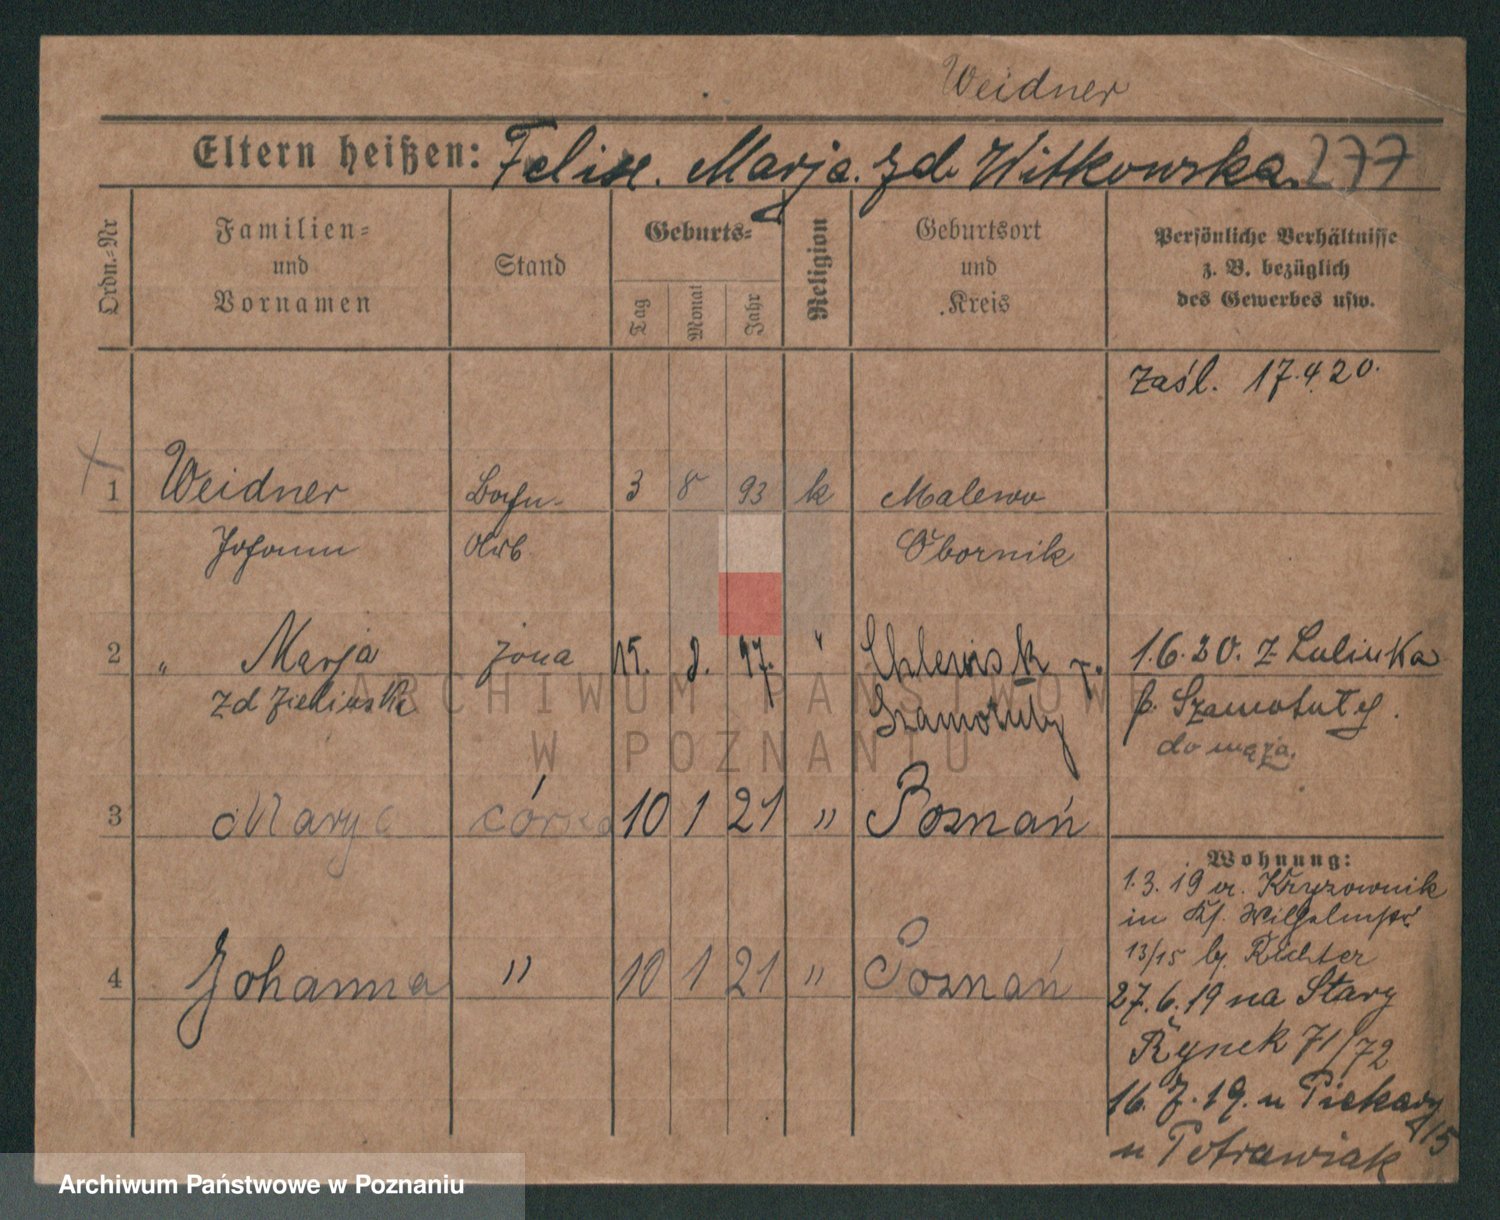 Weidner
Eltern heißen: Felix. Marja. zd. Witkowska. 277
Ordn.-Nr
Familien-
und
Vornamen
Stand
Geburts-
Tag
Monat
Jahr
Religion
Geburtsort
und
Kreis
Persönliche Verhältnisse
z. B. bezüglich
des Gewerbes usw.
zaśl. 17.4.20.
1 Weidner 3 8 93 k Malewo
Johann Obornik
2 " Marja żona 15. 8. 97. " Chlewisk
zd Zielinska Szamotuły
1.6.20. z Lulinka
p. Szamotuły.
do męża.
3 Marya córka 10 1 21 " Poznań
4 Johanna " 10 1 21 " Poznań
Wohnung:
1.3.19 Krzyzownik
in Wilhelmstr.
13/15 Richter
27.6.19 na Stary
Rynek 71/72
16.7.19. u Piekary
u Petrawiak
ARCHIWUM PAŃSTWOWE
W POZNANIU
Archiwum Państwowe w Poznaniu